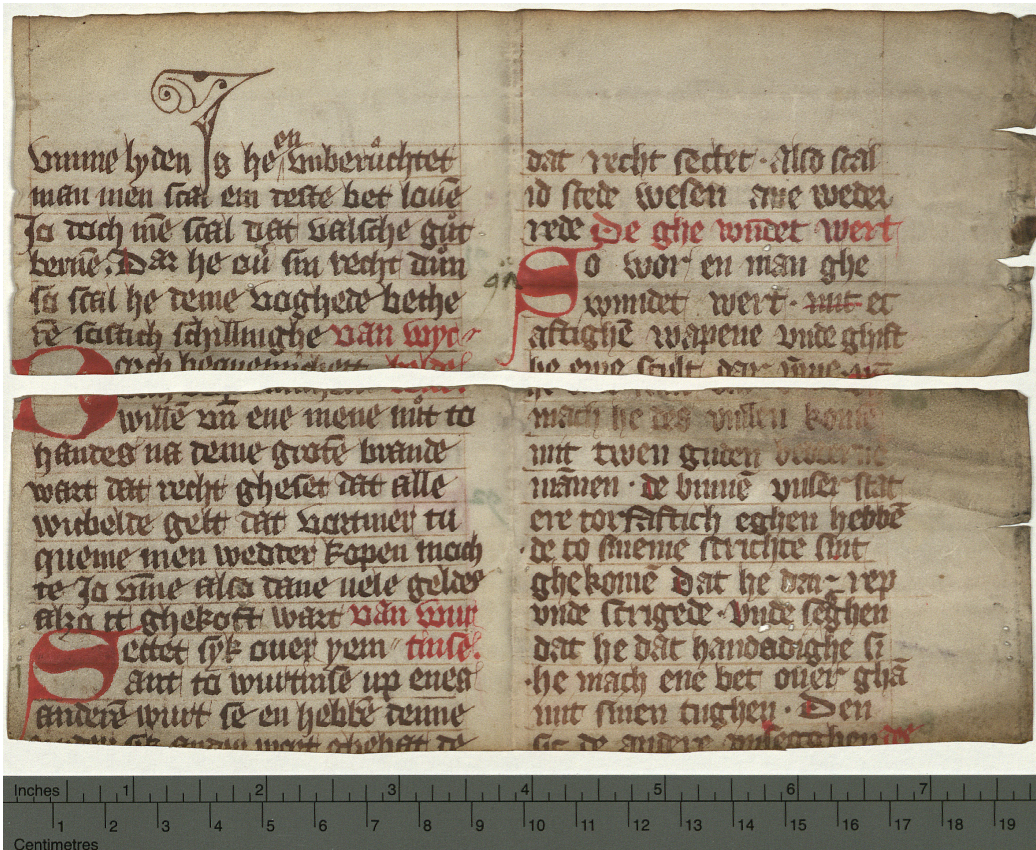 vmme lyden Is he en vnberůchtet
man men scal em teste bet louē
Jo doch mē scal dat valsche gůt
bernē. Dar he ou̅ sin recht důn
so scal he deme voghede bethe
rē sostich schillinghe van wyc
willē vn̄ ene mene nůt to
handes na deme grotē brande
wart dat recht gheset dat alle
wicbelde gelt dat vortmer tu
queme men wedder kopen moch
te Jo vm̄e also dane uele geldes
also it ghekoft wart van wur
Settet syk ouer yem tinse.
ant to wurtinse up enes
anderē wurt se en hebbē denne
dat recht settet. also scal
id stede wesen ane weder
rede De ghe wn̄det wert
So wor en man ghe
wundet wert. mit ec
aftighē wapene vnde ghift
he eme scult dar vm̄e
mach he des vullen komē
mit twen guden
mānen. de bynnē vnser stat
ere torfaftich eghen hebbē
de to sineme scrichte sint
ghekomē Dat he dar rep
vnde scrigede. vnde seghen
dat he dat handadighe si
he mach ene bet ouer ghā
mit sinen tughen. Den
de andere